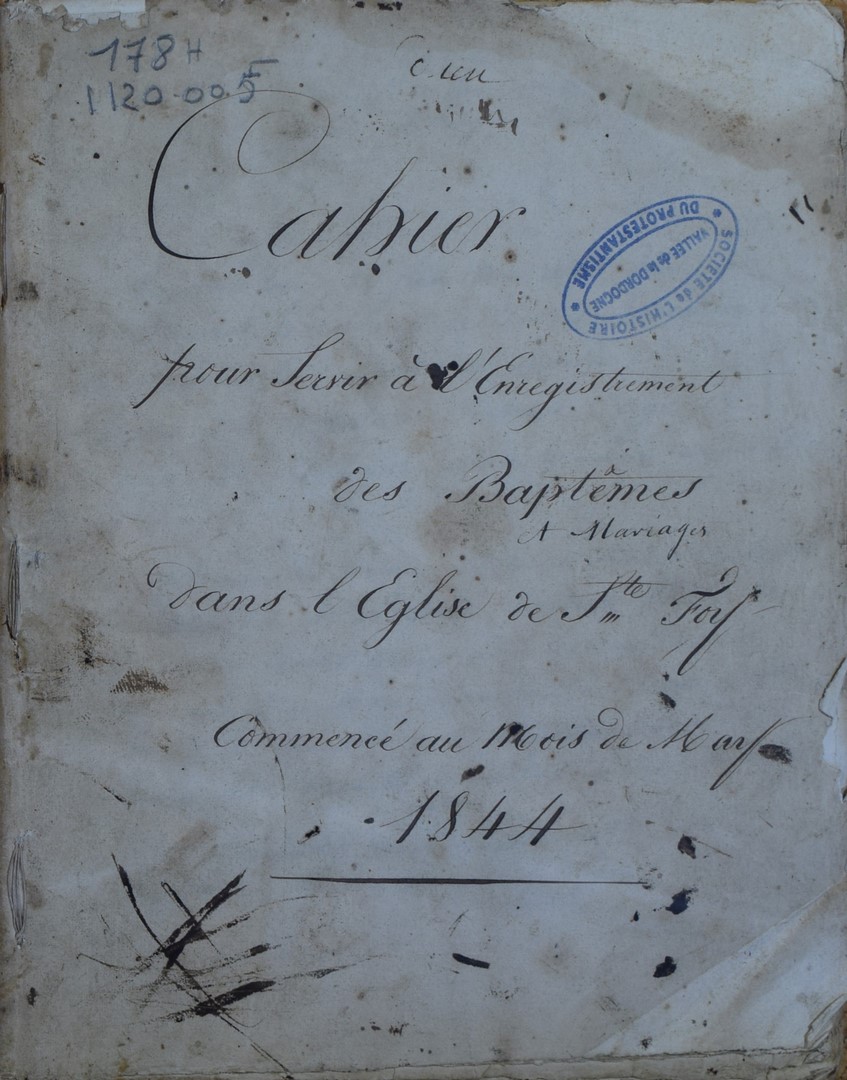 178 H
1120.005
Cahier
pour Servir à l'Enregistrement
des Baptêmes
et Mariages
dans l'Eglise de Ste Foy
Commencé au Mois de Mars
1844
SOCIETE de L'HISTOIRE
DU PROTESTANTISME
VALLEE de la DORDOGNE